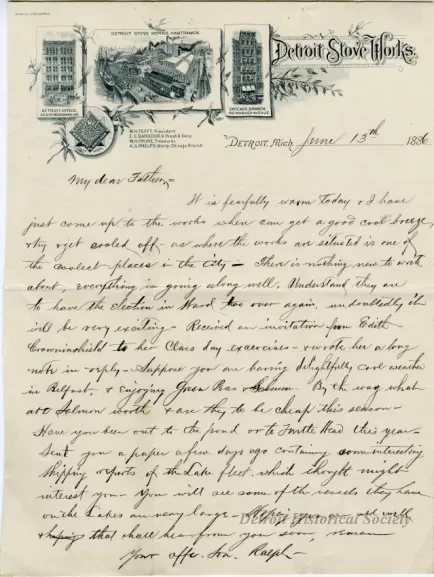 DETROIT STOVE WORKS, HAMTRAMCK.
DETROIT OFFICE,
CHICAGO BRANCH
Detroit Stove Works.
W.H. TEFFT, President.
E.S. BARBOUR, V-Prest & Secy
Treasurer
A.G. PHELPS, Mangr Chicago Branch
DETROIT, Mich June 13th 1886
My dear Father:-
It is fearfully warm today & I have
just come up to the works where can get a good cool breeze
try & get cooled off - as where the works are situated is one of
the coolest places in the City - There is nothing new to write
about, everything is going along well. Understand they are
to have the Election in Ward over again, undoubtedly it
will be very exciting - Received an invitation from Edith
Crowninshield to her Class day exercises - & wrote her a long
note in reply - Suppose you are having delightfully cool weather
in Belfast, & enjoying Green Peas & Salmon - By the way what
are Salmon worth & are they to be cheap this season -
Have you been out to the pond or to Turtle Head this year -
Sent you a paper a few days ago containing some interesting
Shipping reports of the Lake fleet, which thought might
interest you - You will see some of the vessels they have
on the Lakes are very large - Hoping you are all well
& hoping that shall hear from you soon, remain
Your affc. Son Ralph -
Detroit Historical Society